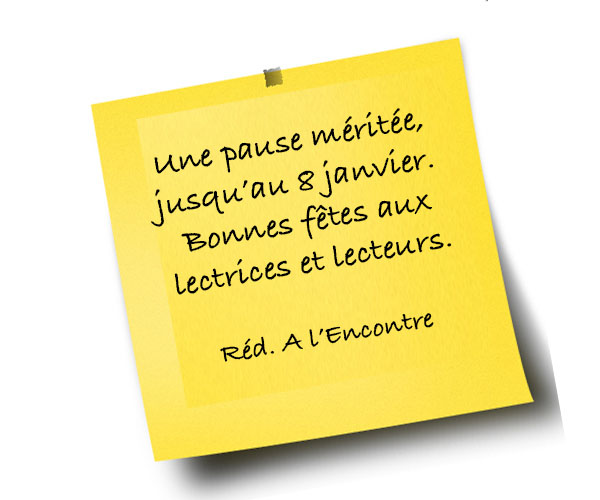 Une pause méritée,
jusqu'au 8 janvier.
Bonnes fêtes aux
lectrices et lecteurs.
Réd. A l'Encontre